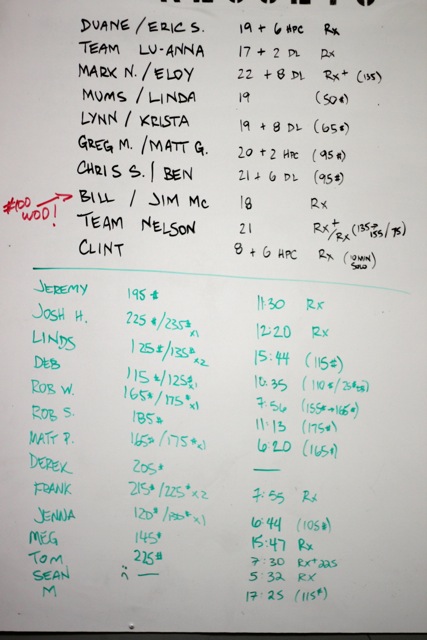 DUANE / ERIC S. 19 + 6 HPC Rx
TEAM LU-ANNA 17 + 2 DL Rx
MARK N. / ELOY 22 + 8 DL Rx+ (155)
MUMS / LINDA 19 (50#)
LYNN / KRISTA 19 + 8 DL (65#)
GREG M. / MATT G. 20 + 2 HPC (95#)
CHRIS S. / BEN 21 + 6 DL (95#)
#100 WOD! → BILL / JIM MC 18 Rx
TEAM NELSON 21 Rx+/Rx (135→155/75)
CLINT 8 + 6 HPC Rx (10 MIN SOLO)
JEREMY 195# 11:30 Rx
JOSH H. 225#/235# x1 12:20 Rx
LINDS 125#/135# x2 15:44 (115#)
DEB 115#/125# x1 10:35
ROB W. 165#/175# x1 7:56 (155#→165#)
ROB S. 185# 11:13 (175#)
MATT P. 165#/175# x1 6:20 (165#)
DEREK 205# —
FRANK 215#/225# x2 7:55 Rx
JENNA 120#/130# x1 6:44 (105#)
MEG 145# 15:47 Rx
TOM 225# 7:30 Rx+225
SEAN — 5:32 Rx
M 17:25 (115#)